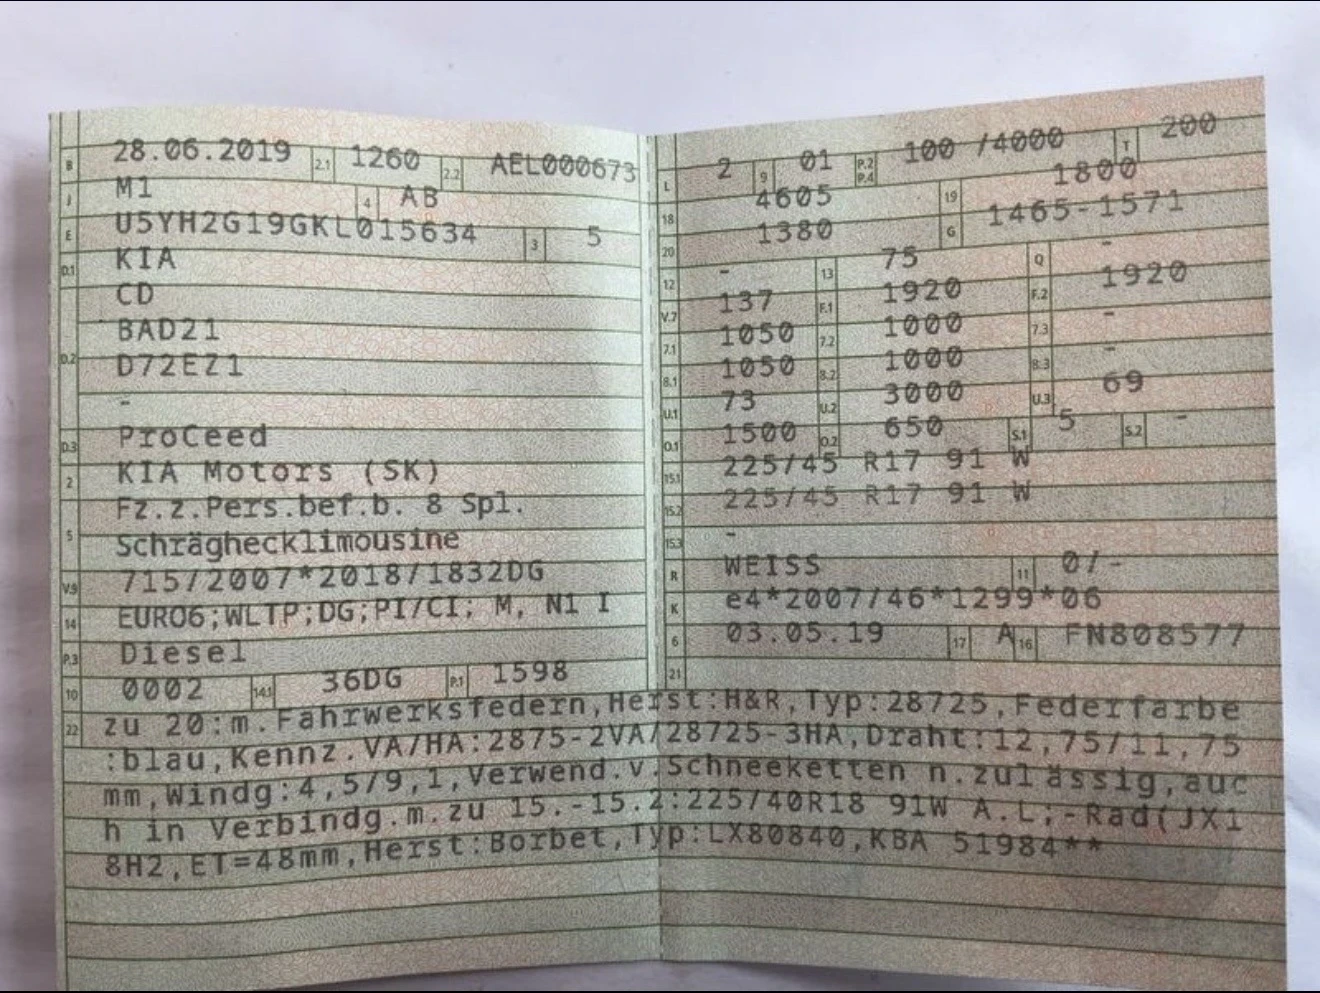 B 28.06.2019 2.1 1260 2.2 AEL000673
J M1 4 AB
E U5YH2G19GKL015634 3 5
D.1 KIA
CD
BAD21
D.2 D72EZ1
-
D.3 ProCeed
2 KIA Motors (SK)
Fz.z.Pers.bef.b. 8 Spl.
5 Schräghecklimousine
V.9 715/2007*2018/1832DG
14 EURO6;WLTP;DG;PI/CI; M, N1 I
P.3 Diesel
10 0002 14.1 36DG P.1 1598
L 2 9 01 P.2 P.4 100 /4000 T 200
18 4605 19 1800
20 1380 G 1465-1571
12 - 13 75 Q -
V.7 137 F.1 1920 F.2 1920
7.1 1050 7.2 1000 7.3 -
8.1 1050 8.2 1000 8.3 -
U.1 73 U.2 3000 U.3 69
O.1 1500 O.2 650 S.1 5 S.2 -
15.1 225/45 R17 91 W
15.2 225/45 R17 91 W
15.3 -
R WEISS 11 0/-
K e4*2007/46*1299*06
6 03.05.19 17 A 16 FN808577
21
22 zu 20:m.Fahrwerksfedern,Herst:H&R,Typ:28725,Federfarbe
:blau,Kennz.VA/HA:2875-2VA/28725-3HA,Draht:12,75/11,75
mm,Windg:4,5/9,1,Verwend.v.Schneeketten n.zulässig,auc
h in Verbindg.m.zu 15.-15.2:225/40R18 91W A.L;-Rad(JX1
8H2,ET=48mm,Herst:Borbet,Typ:LX80840,KBA 51984**